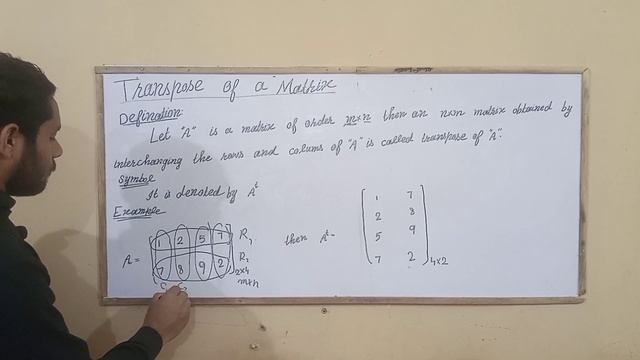 Transpose of a Matrix
Defination:
Let "A" is a matrix of order m×n then an n×m matrix obtained by
interchanging the rows and colums of "A" is called transpose of "A".
Symbol
It is denoted by Aᵗ
Example
A = [1 2 5 7] R₁
[7 8 9 2] R₂ 2×4
m×n
C₁ C₂
then Aᵗ = [1 7]
[2 8]
[5 9]
[7 2] 4×2